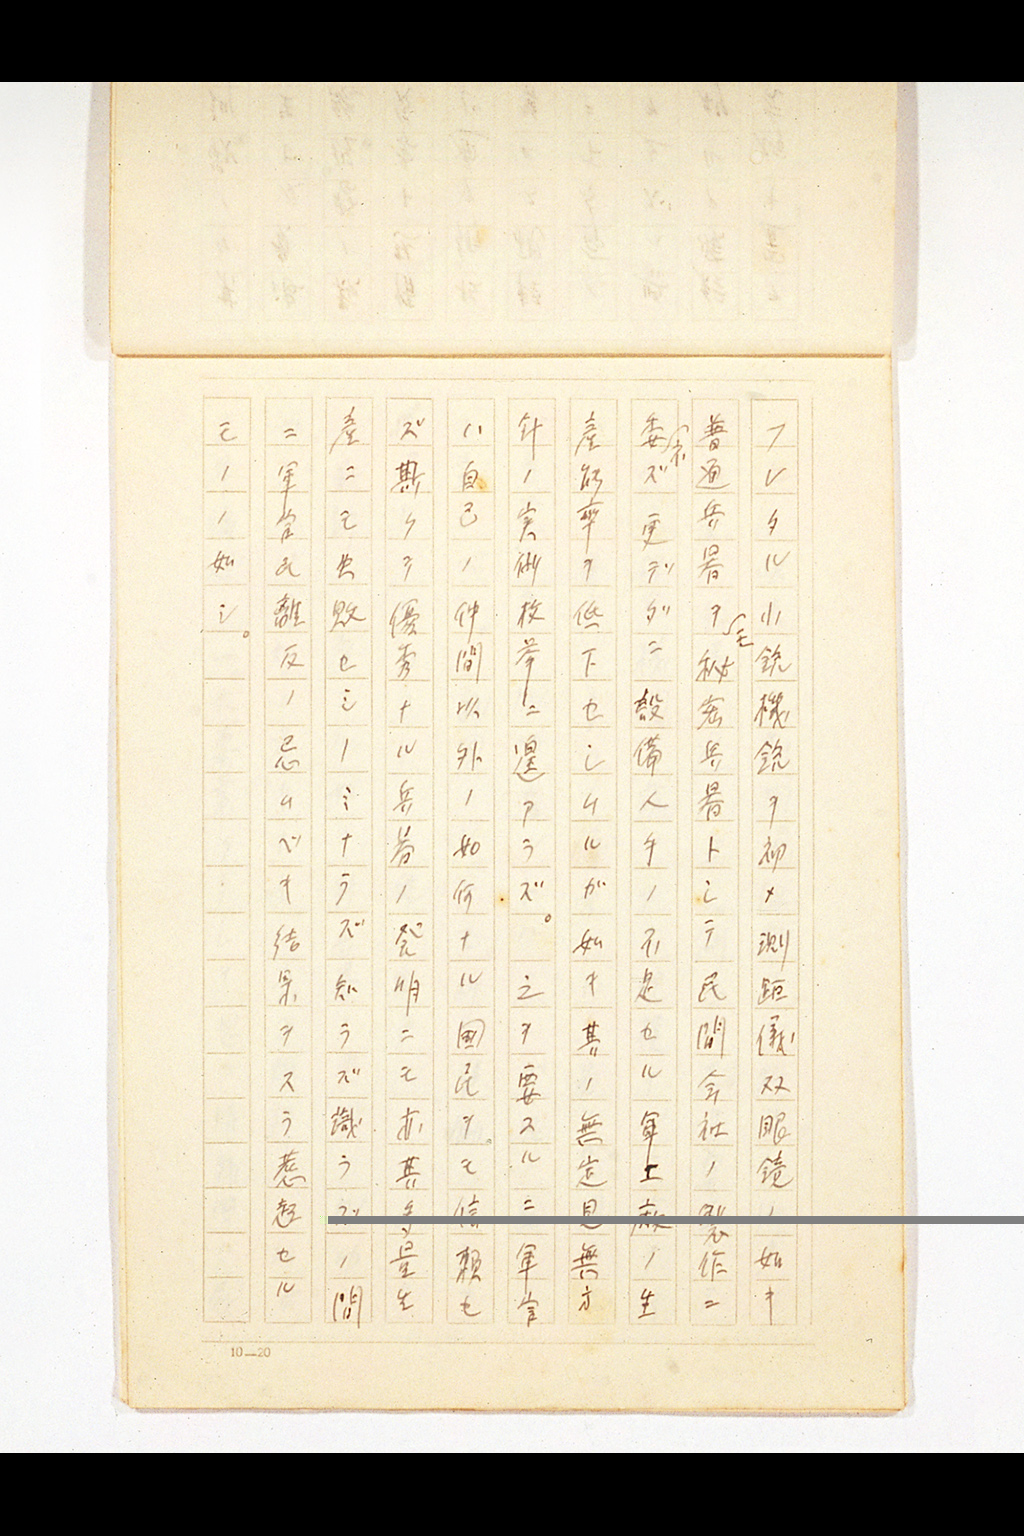 フレタル小銃機銃ヲ初メ測距儀双眼鏡ノ如キ
普通兵器ヲモ秘密兵器トシテ民間会社ノ製作ニ
委ネズ更ラヅダニ設備人手ノ不足セル軍工廠ノ生
産能率ヲ低下セシムルガ如キ其ノ無定見無方
針ノ実例枚挙ニ遑アラズ。之ヲ要スルニ軍官
ハ自己ノ仲間以外ノ如何ナル國民ヲモ信頼セ
ズ斯クテ優秀ナル兵器ノ発明ニモ亦其多量生
産ニモ失敗セシノミナラズ知ラズ識ラズノ間
ニ軍官民離反ノ忌ムベキ結果ヲスラ惹起セル
モノノ如シ。
10—20